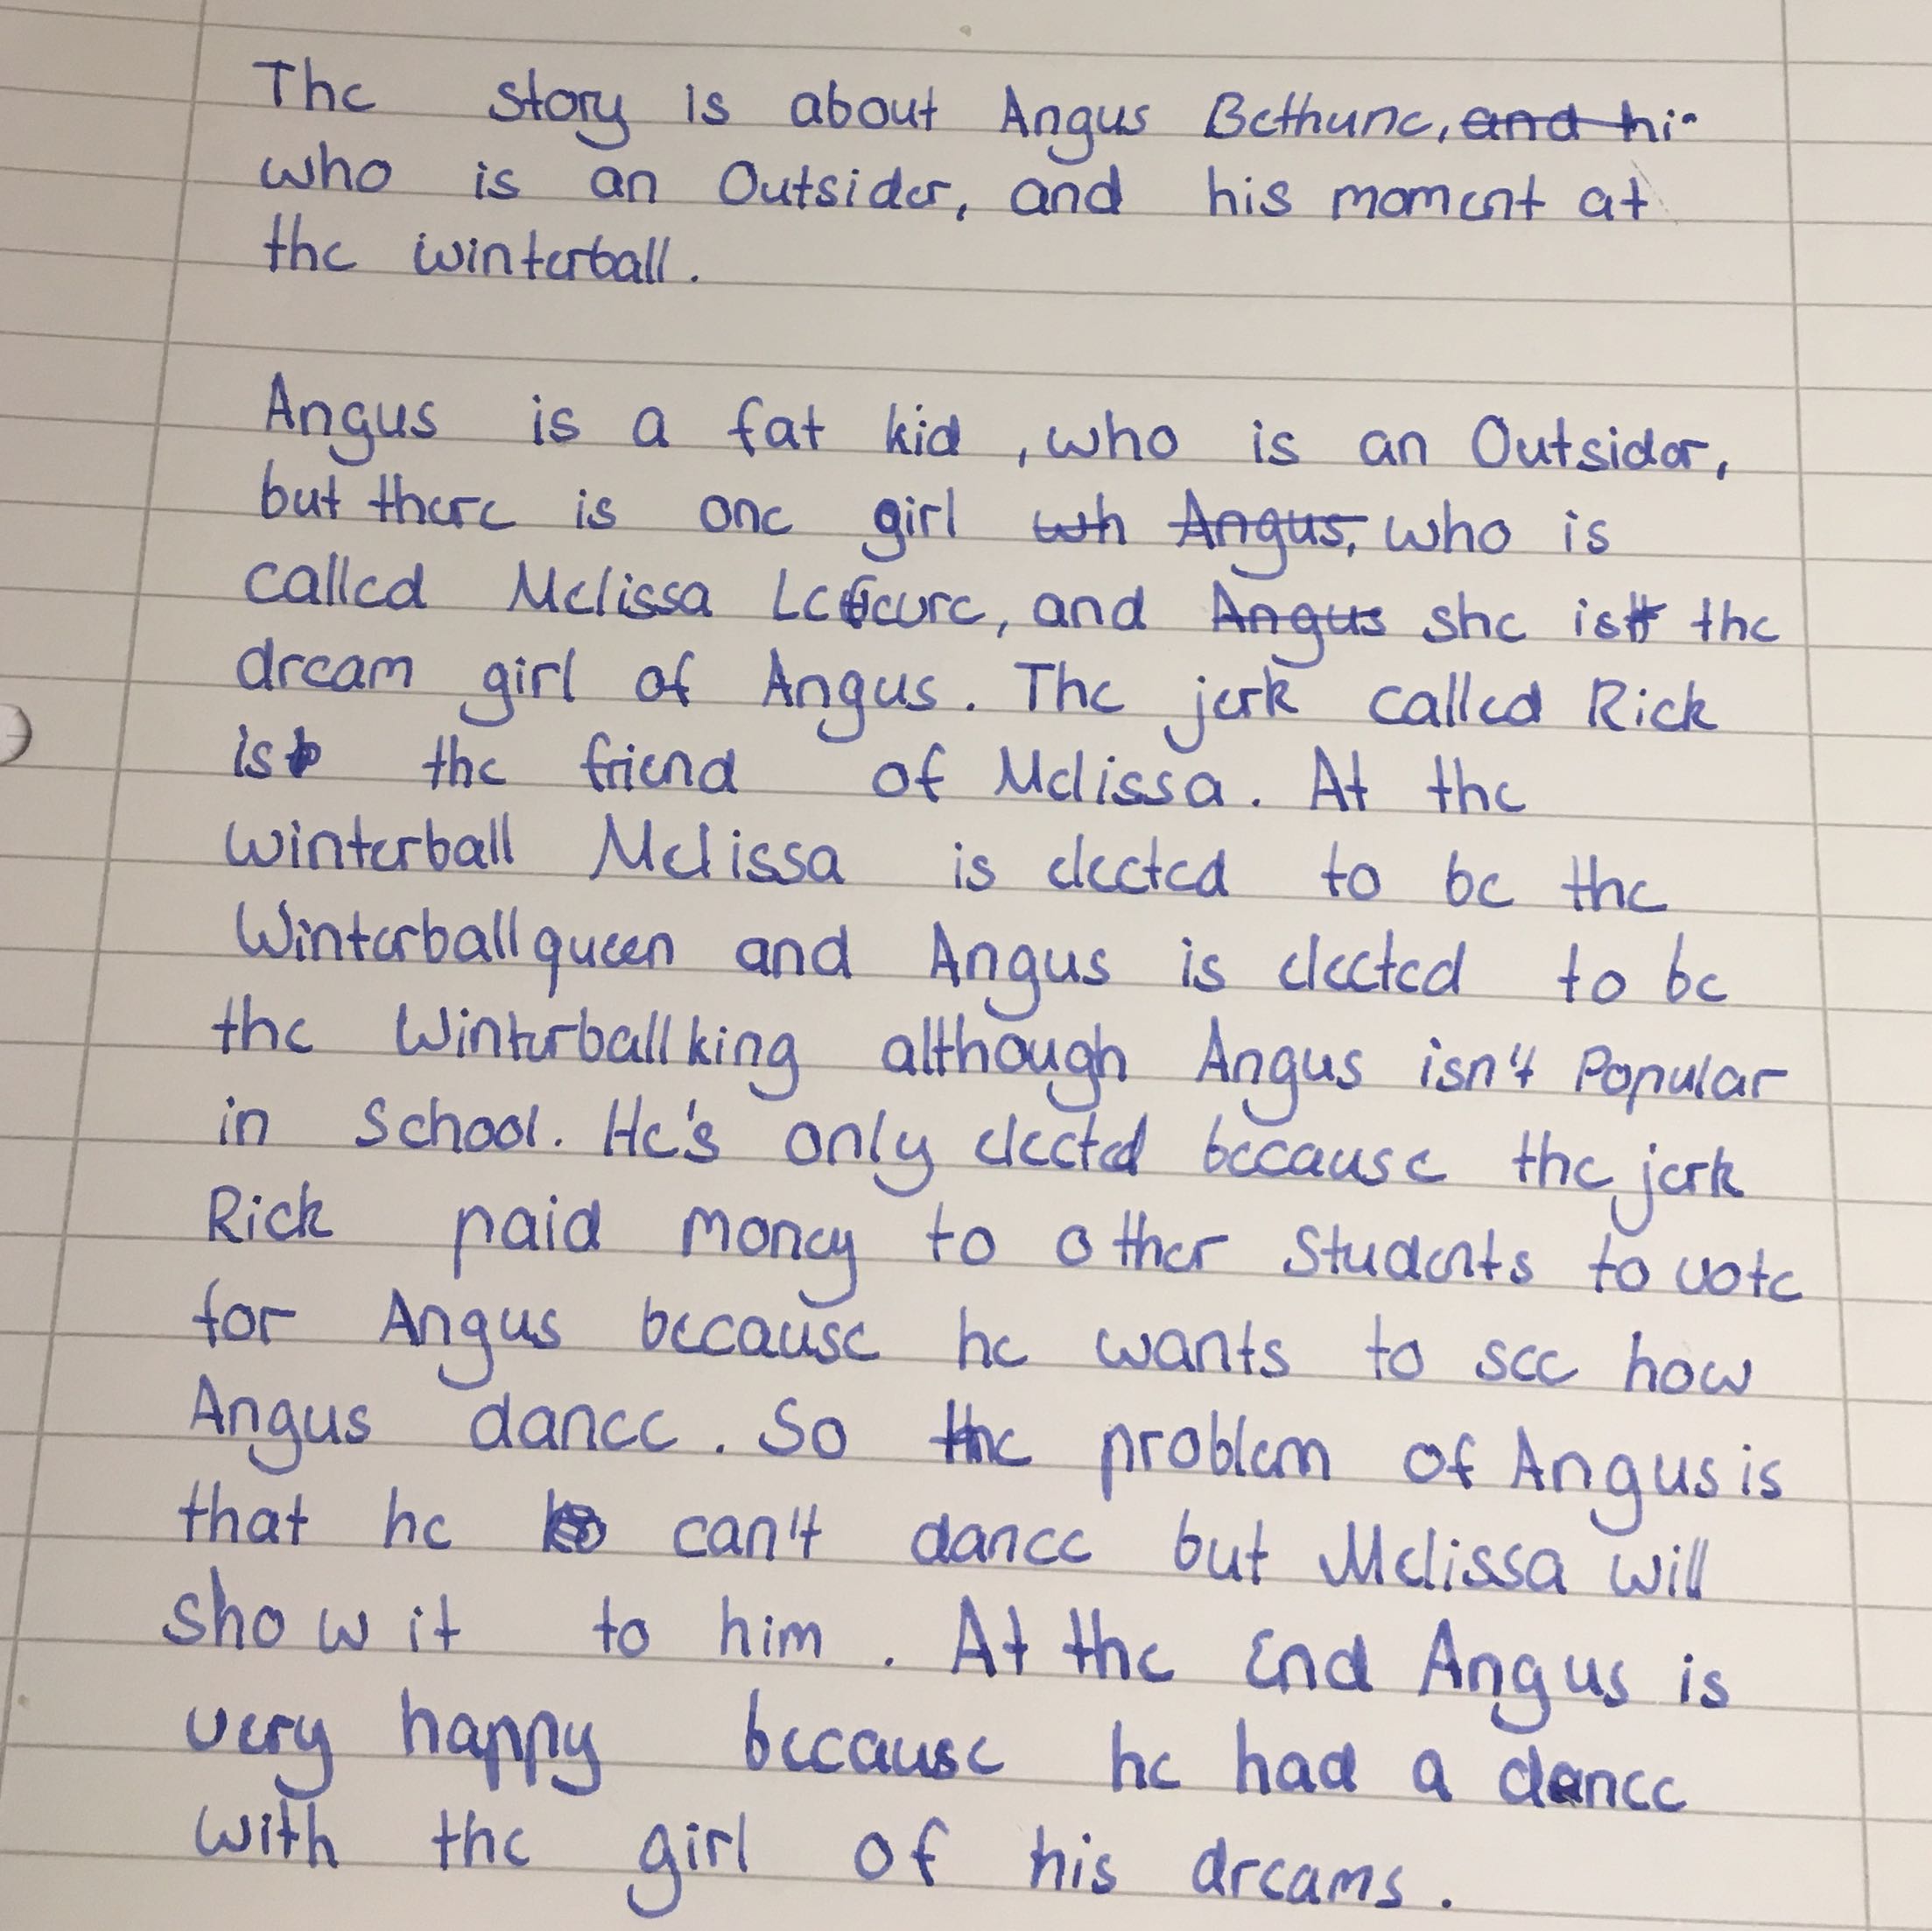 The story is about Angus Bethune, and hi
who is an Outsider, and his moment at
the winterball.
Angus is a fat kid , who is an Outsider,
but there is one girl wh Angus, who is
called Melissa Lefeure, and Angus she is the
dream girl of Angus. The jerk called Rick
is the friend of Melissa. At the
winterball Melissa is elected to be the
Winterballqueen and Angus is elected to be
the Winterballking although Angus isn't Popular
in School. He's only elected because the jerk
Rick paid money to other Students to vote
for Angus because he wants to see how
Angus dance. So the problem of Angus is
that he can't dance but Melissa will
show it to him. At the End Angus is
very happy because he had a dance
with the girl of his dreams.